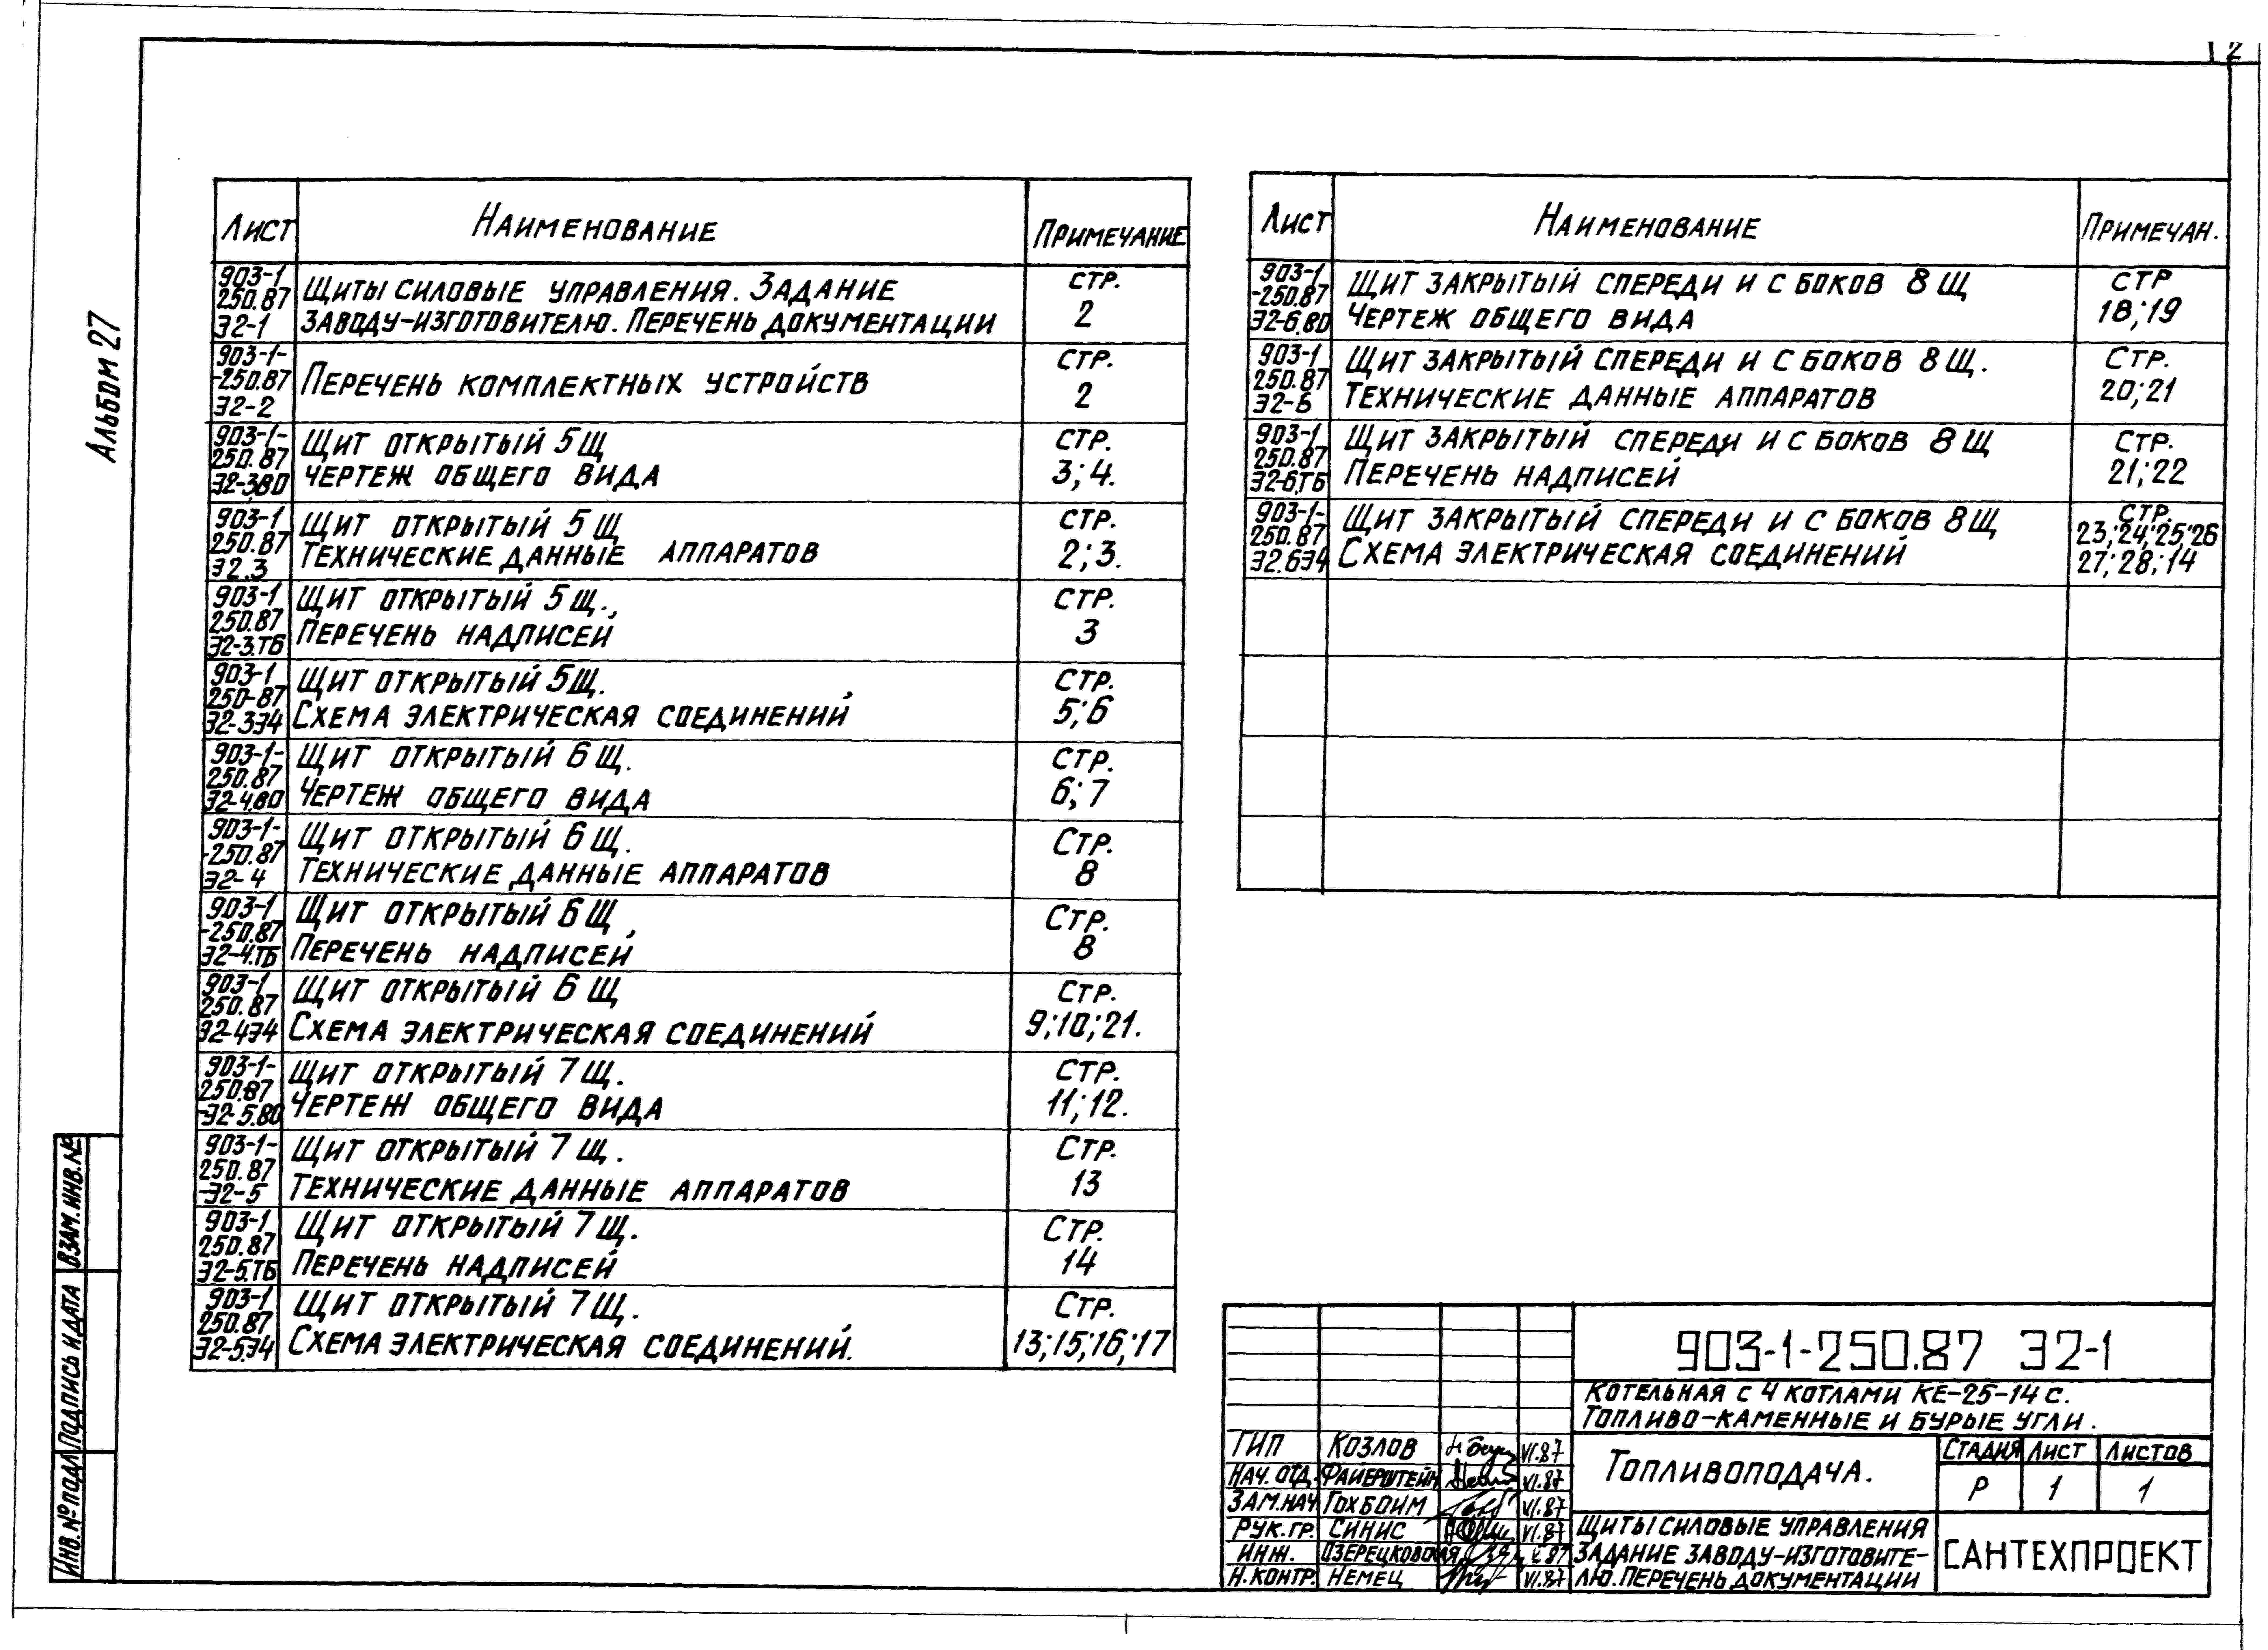 2
Альбом 27
Лист Наименование Примечание
903-1
250.87
Э2-1
Щиты силовые управления. Задание
заводу-изготовителю. Перечень документации
стр.
2
903-1-
-250.87
Э2-2
Перечень комплектных устройств
стр.
2
903-1-
250.87
Э2-3.ВО
Щит открытый 5щ
чертеж общего вида
стр.
3;4.
903-1
250.87
Э2.3
Щит открытый 5щ
Технические данные аппаратов
стр.
2;3.
903-1
250.87
Э2-3.ТБ
Щит открытый 5щ.,
Перечень надписей
стр.
3
903-1
250-87
Э2-3Э4
Щит открытый 5щ.
Схема электрическая соединений
стр.
5;6
903-1-
250.87
Э2-4.ВО
Щит открытый 6щ.
Чертеж общего вида
стр.
6;7
903-1-
-250.87
Э2-4
Щит открытый 6щ.
Технические данные аппаратов
Стр.
8
903-1
-250.87
Э2-4.ТБ
Щит открытый 6щ,
Перечень надписей
Стр.
8
903-1
250.87
Э2-4Э4
Щит открытый 6щ
Схема электрическая соединений
Стр.
9;10;21.
903-1-
250.87
-Э2-5.ВО
Щит открытый 7щ.
Чертеж общего вида
Стр.
11;12.
903-1-
250.87
-Э2-5
Щит открытый 7щ.
Технические данные аппаратов
Стр.
13
903-1
250.87
Э2-5.ТБ
Щит открытый 7щ.
Перечень надписей
Стр.
14
903-1
250.87
Э2-5.Э4
Щит открытый 7щ.
Схема электрическая соединений.
Стр.
13;15;16;17
Лист Наименование Примечан.
903-1
-250.87
Э2-6.ВО
Щит закрытый спереди и с боков 8щ
Чертеж общего вида
стр
18;19
903-1
250.87
Э2-6
Щит закрытый спереди и с боков 8щ.
Технические данные аппаратов
Стр.
20;21
903-1
250.87
Э2-6.ТБ
Щит закрытый спереди и с боков 8щ
Перечень надписей
Стр.
21;22
903-1-
250.87
Э2.6Э4
Щит закрытый спереди и с боков 8щ
Схема электрическая соединений
стр.
23;24;25;26
27;28;14
Взам.инв.№
Подпись и дата
Инв.№ подл
903-1-250.87 Э2-1
Котельная с 4 котлами КЕ-25-14с.
Топливо-каменные и бурые угли.
ГИП Козлов VI.87
Нач. отд. Файерштейн VI.87
Зам.нач Гохбойм VI.87
Рук.гр. Синис VI.87
Инж. Озерецковская V.87
Н.контр. Немец VI.87
Топливоподача.
Стадия Лист Листов
Р 1 1
Щиты силовые управления
Задание заводу-изготовите-
лю. Перечень документации
САНТЕХПРОЕКТ